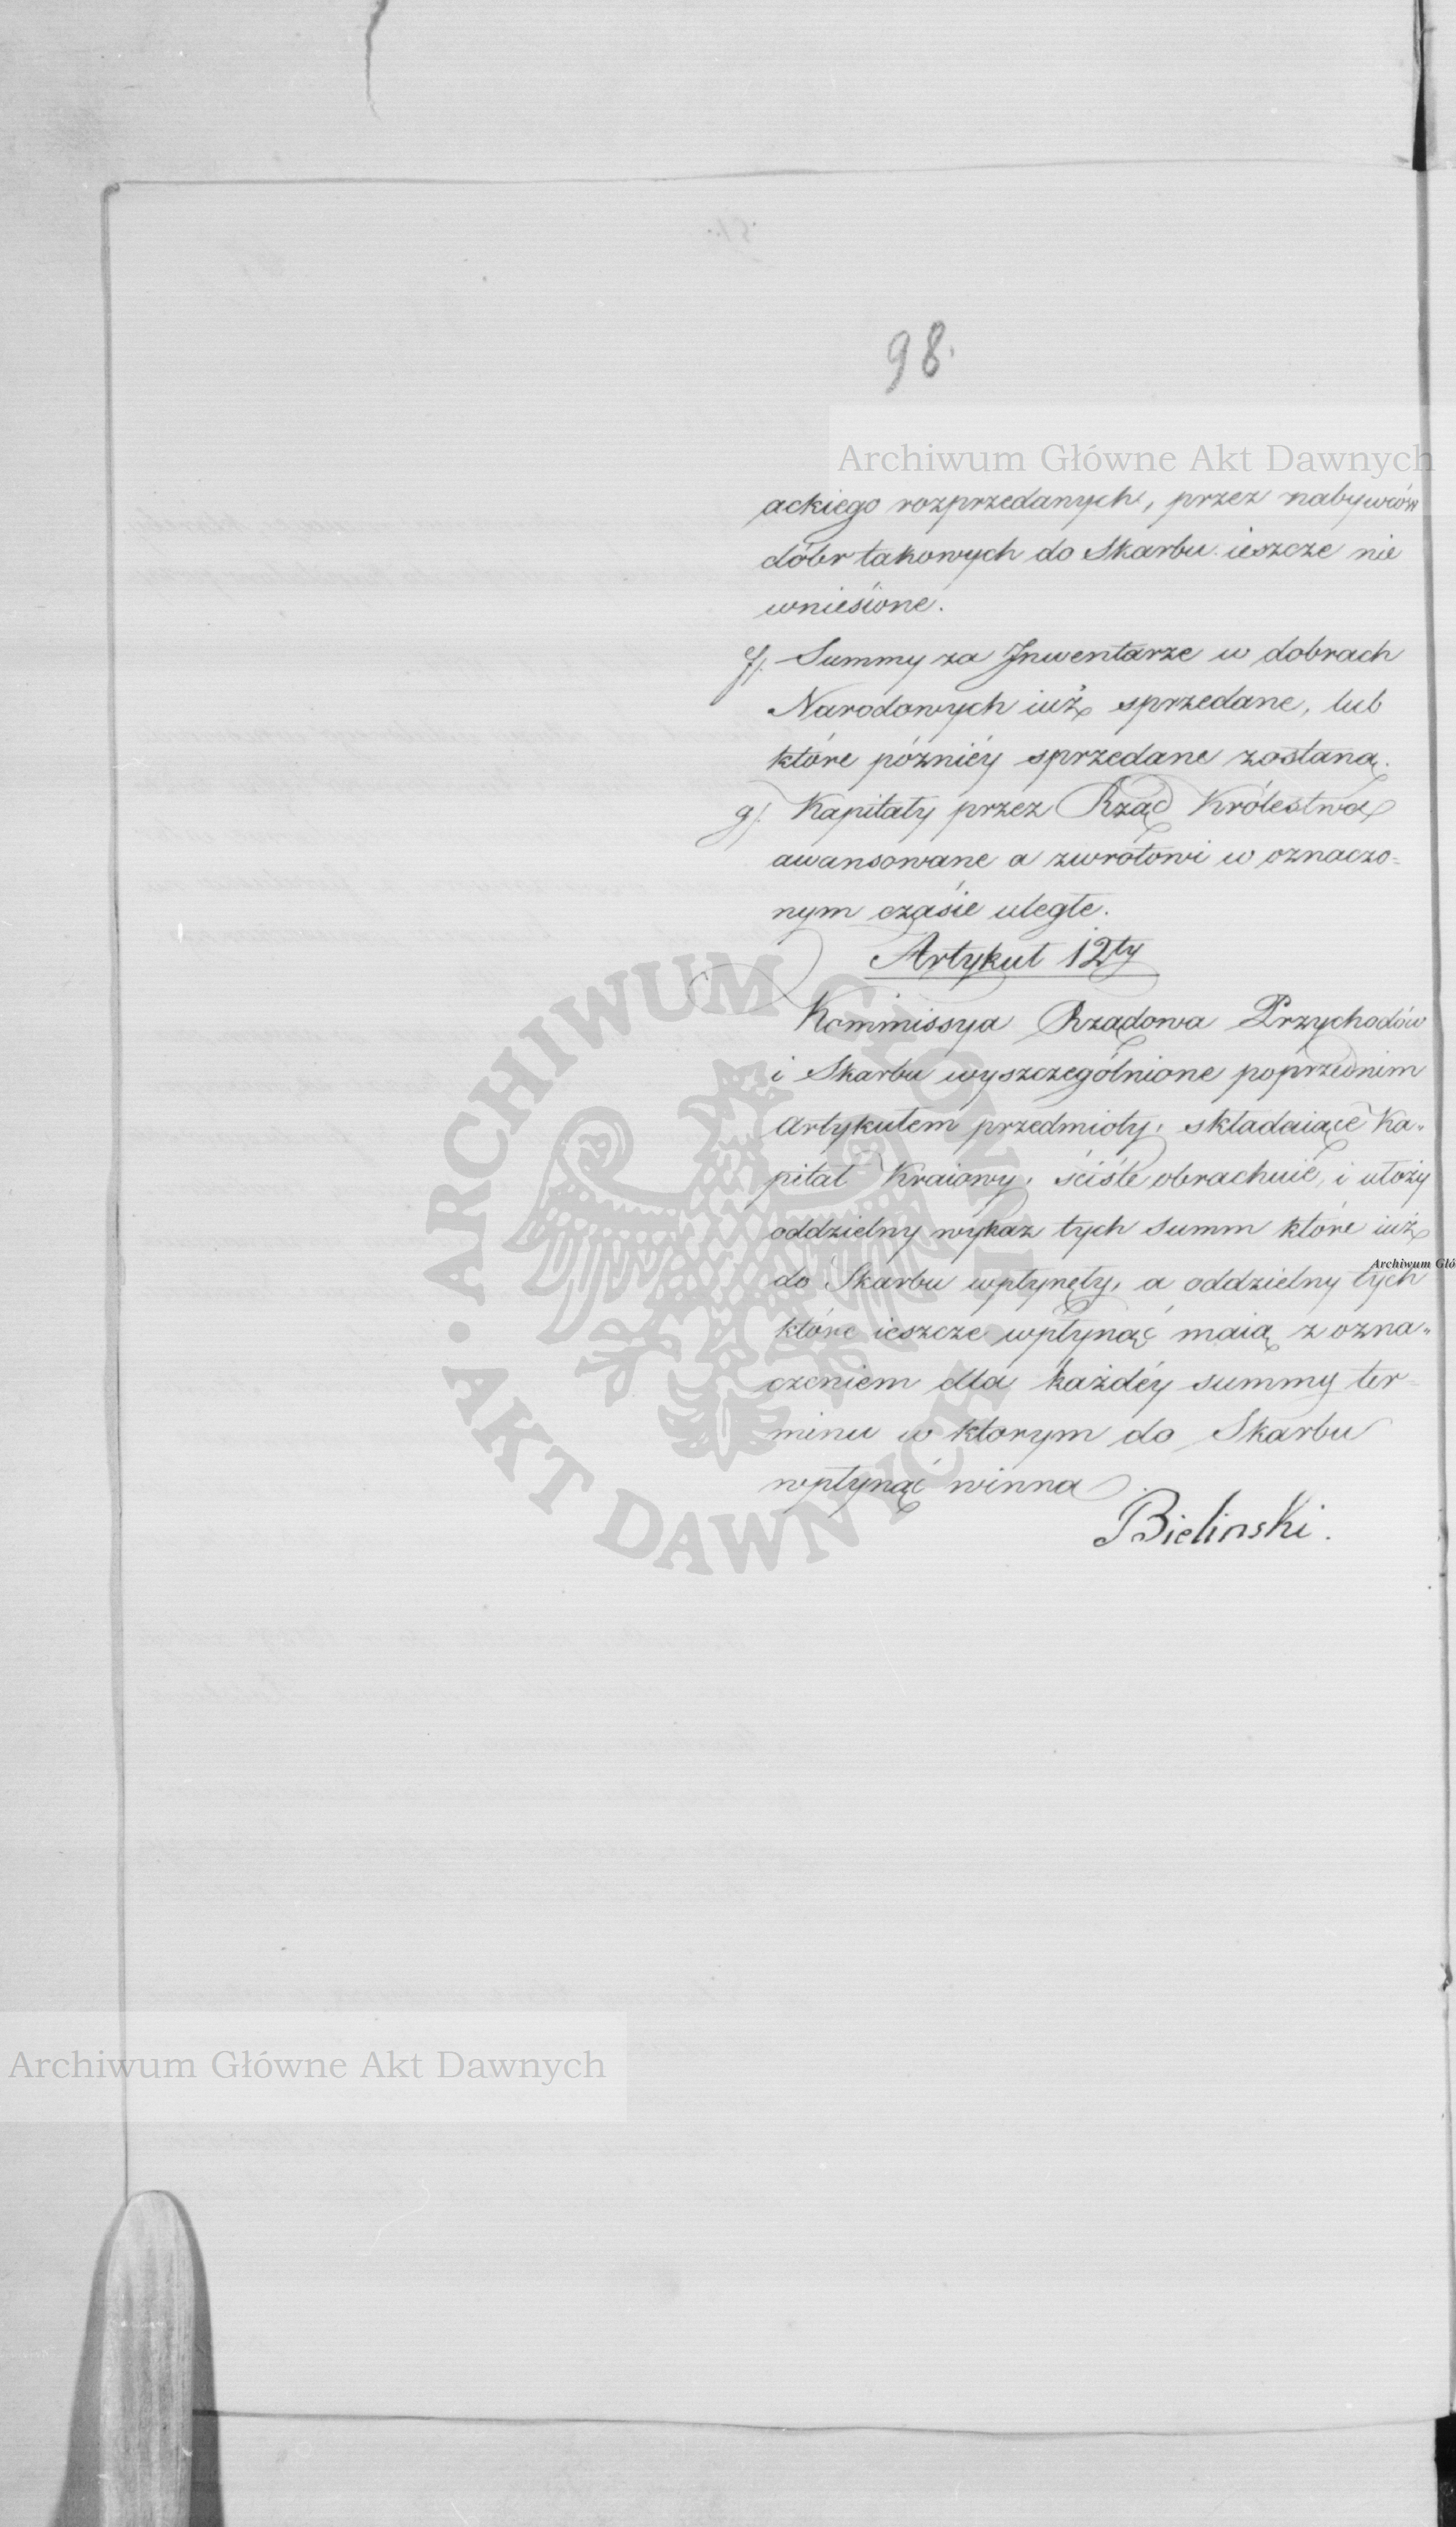 98.
Archiwum Główne Akt Dawnych
ackiego rozprzedanych, przez nabywców
dóbr takowych do Skarbu ieszcze nie
wniesione.
f). Summy za Jnwentarze w dobrach
Narodowych iuż sprzedane, lub
które późniéy sprzedane zostaną.
g). Kapitały przez Rząd Królestwa
awansowane a zwrotowi w oznaczo=
nym czasie uległe.
Artykuł 12ty
Kommissya Rządowa Przychodów
i Skarbu wyszczególnione poprzednim
Artykułem przedmioty, składaiące Ka„
pitał Kraiowy, ściśle obrachuie, i ułoży
oddzielny wykaz tych summ które iuż
Archiwum Głó
do Skarbu wpłynęły, a oddzielny tych
które ieszcze wpłynąć maią z ozna„
czeniem dla każdéy summy ter=
minu w ktorym do Skarbu
wpłynąć winna
Bielinski.
ARCHIWUM GŁÓWNE
AKT DAWNYCH
Archiwum Główne Akt Dawnych